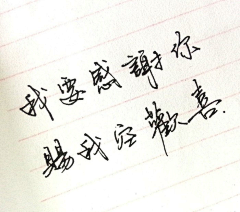 我要感謝你
賜我空歡喜.